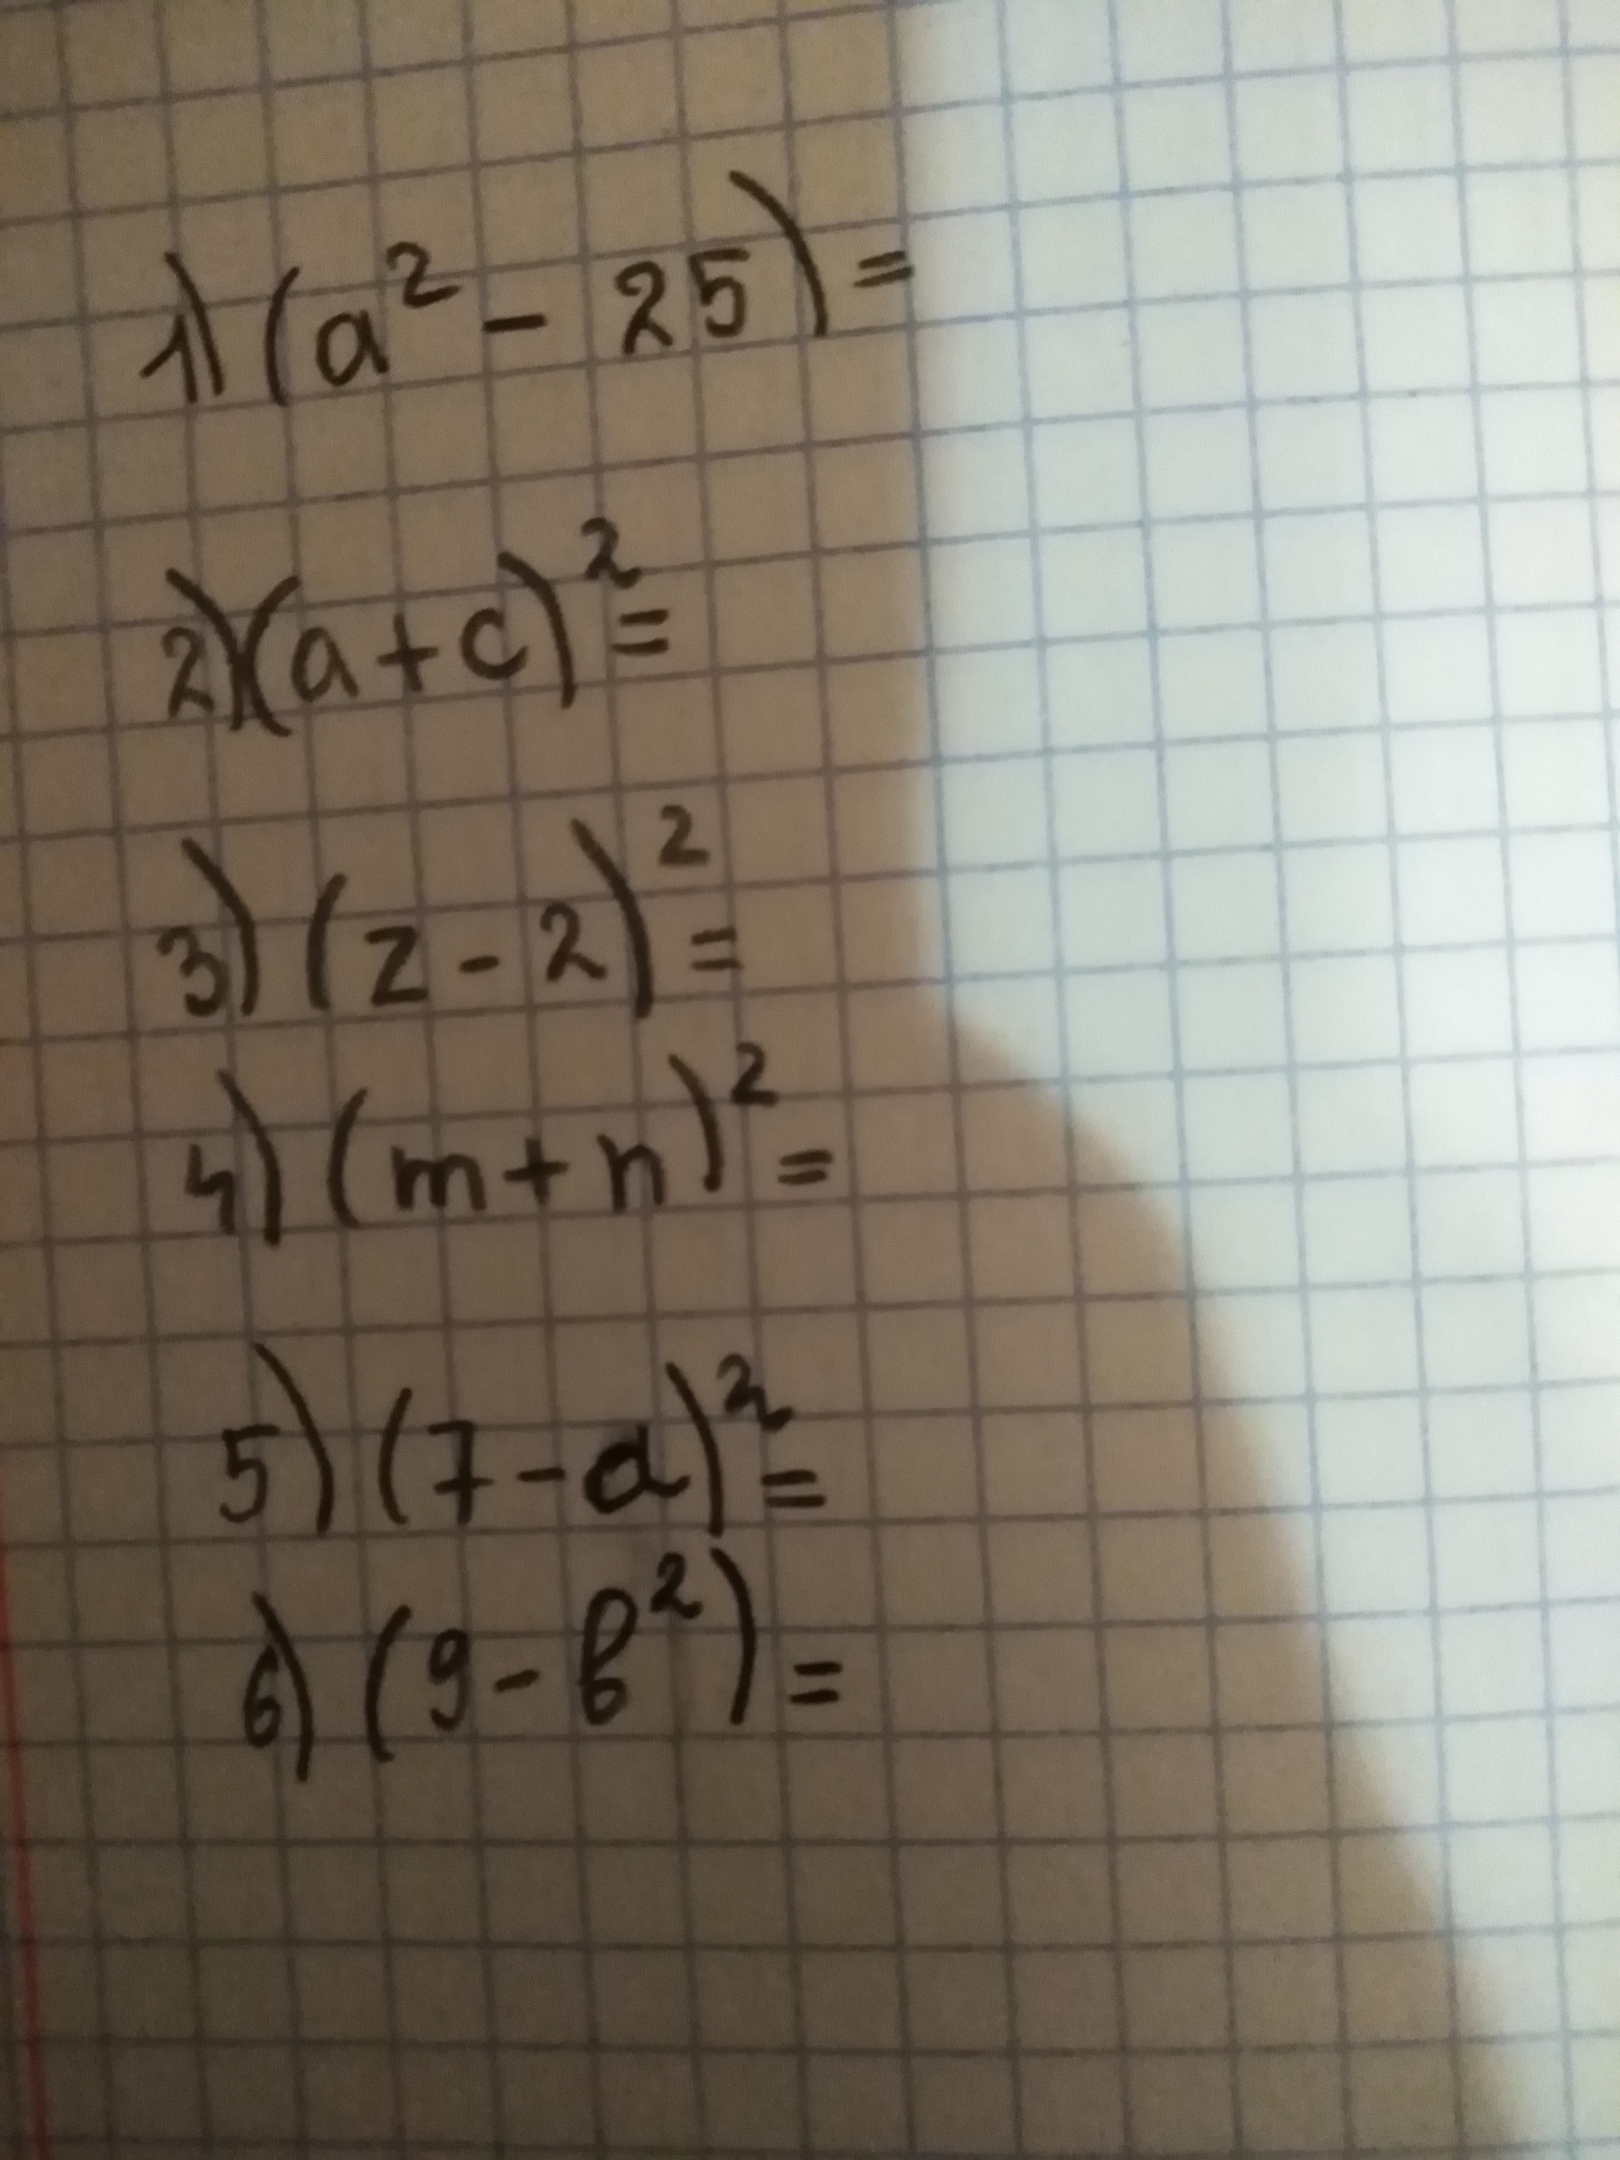 1) (a² - 25) =
2) (a + c)² =
3) (z - 2)² =
4) (m + n)² =
5) (7 - a)² =
6) (9 - в²) =